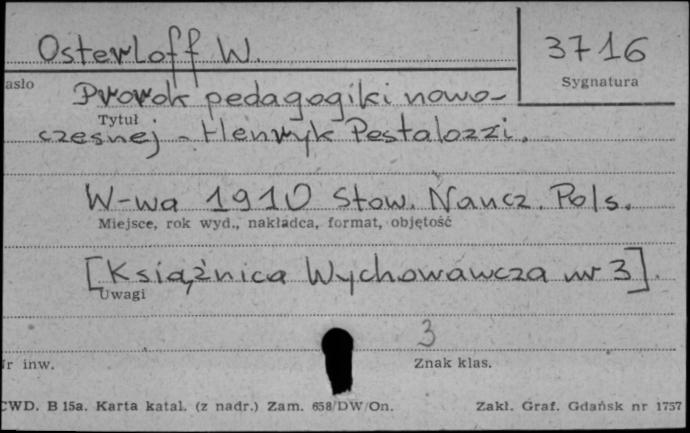 Osterloff W.
3716
asło
Sygnatura
Prorok pedagogiki nowo-
Tytuł
czesnej - Henryk Pestalozzi.
W-wa 1910 Stow. Naucz. Pols.
Miejsce, rok wyd., nakładca, format, objętość
[Książnica Wychowawcza nr 3].
Uwagi
3
Nr inw.
Znak klas.
CWD. B 15a. Karta katal. (z nadr.) Zam. 658/DW/On.
Zakł. Graf. Gdańsk nr 1757